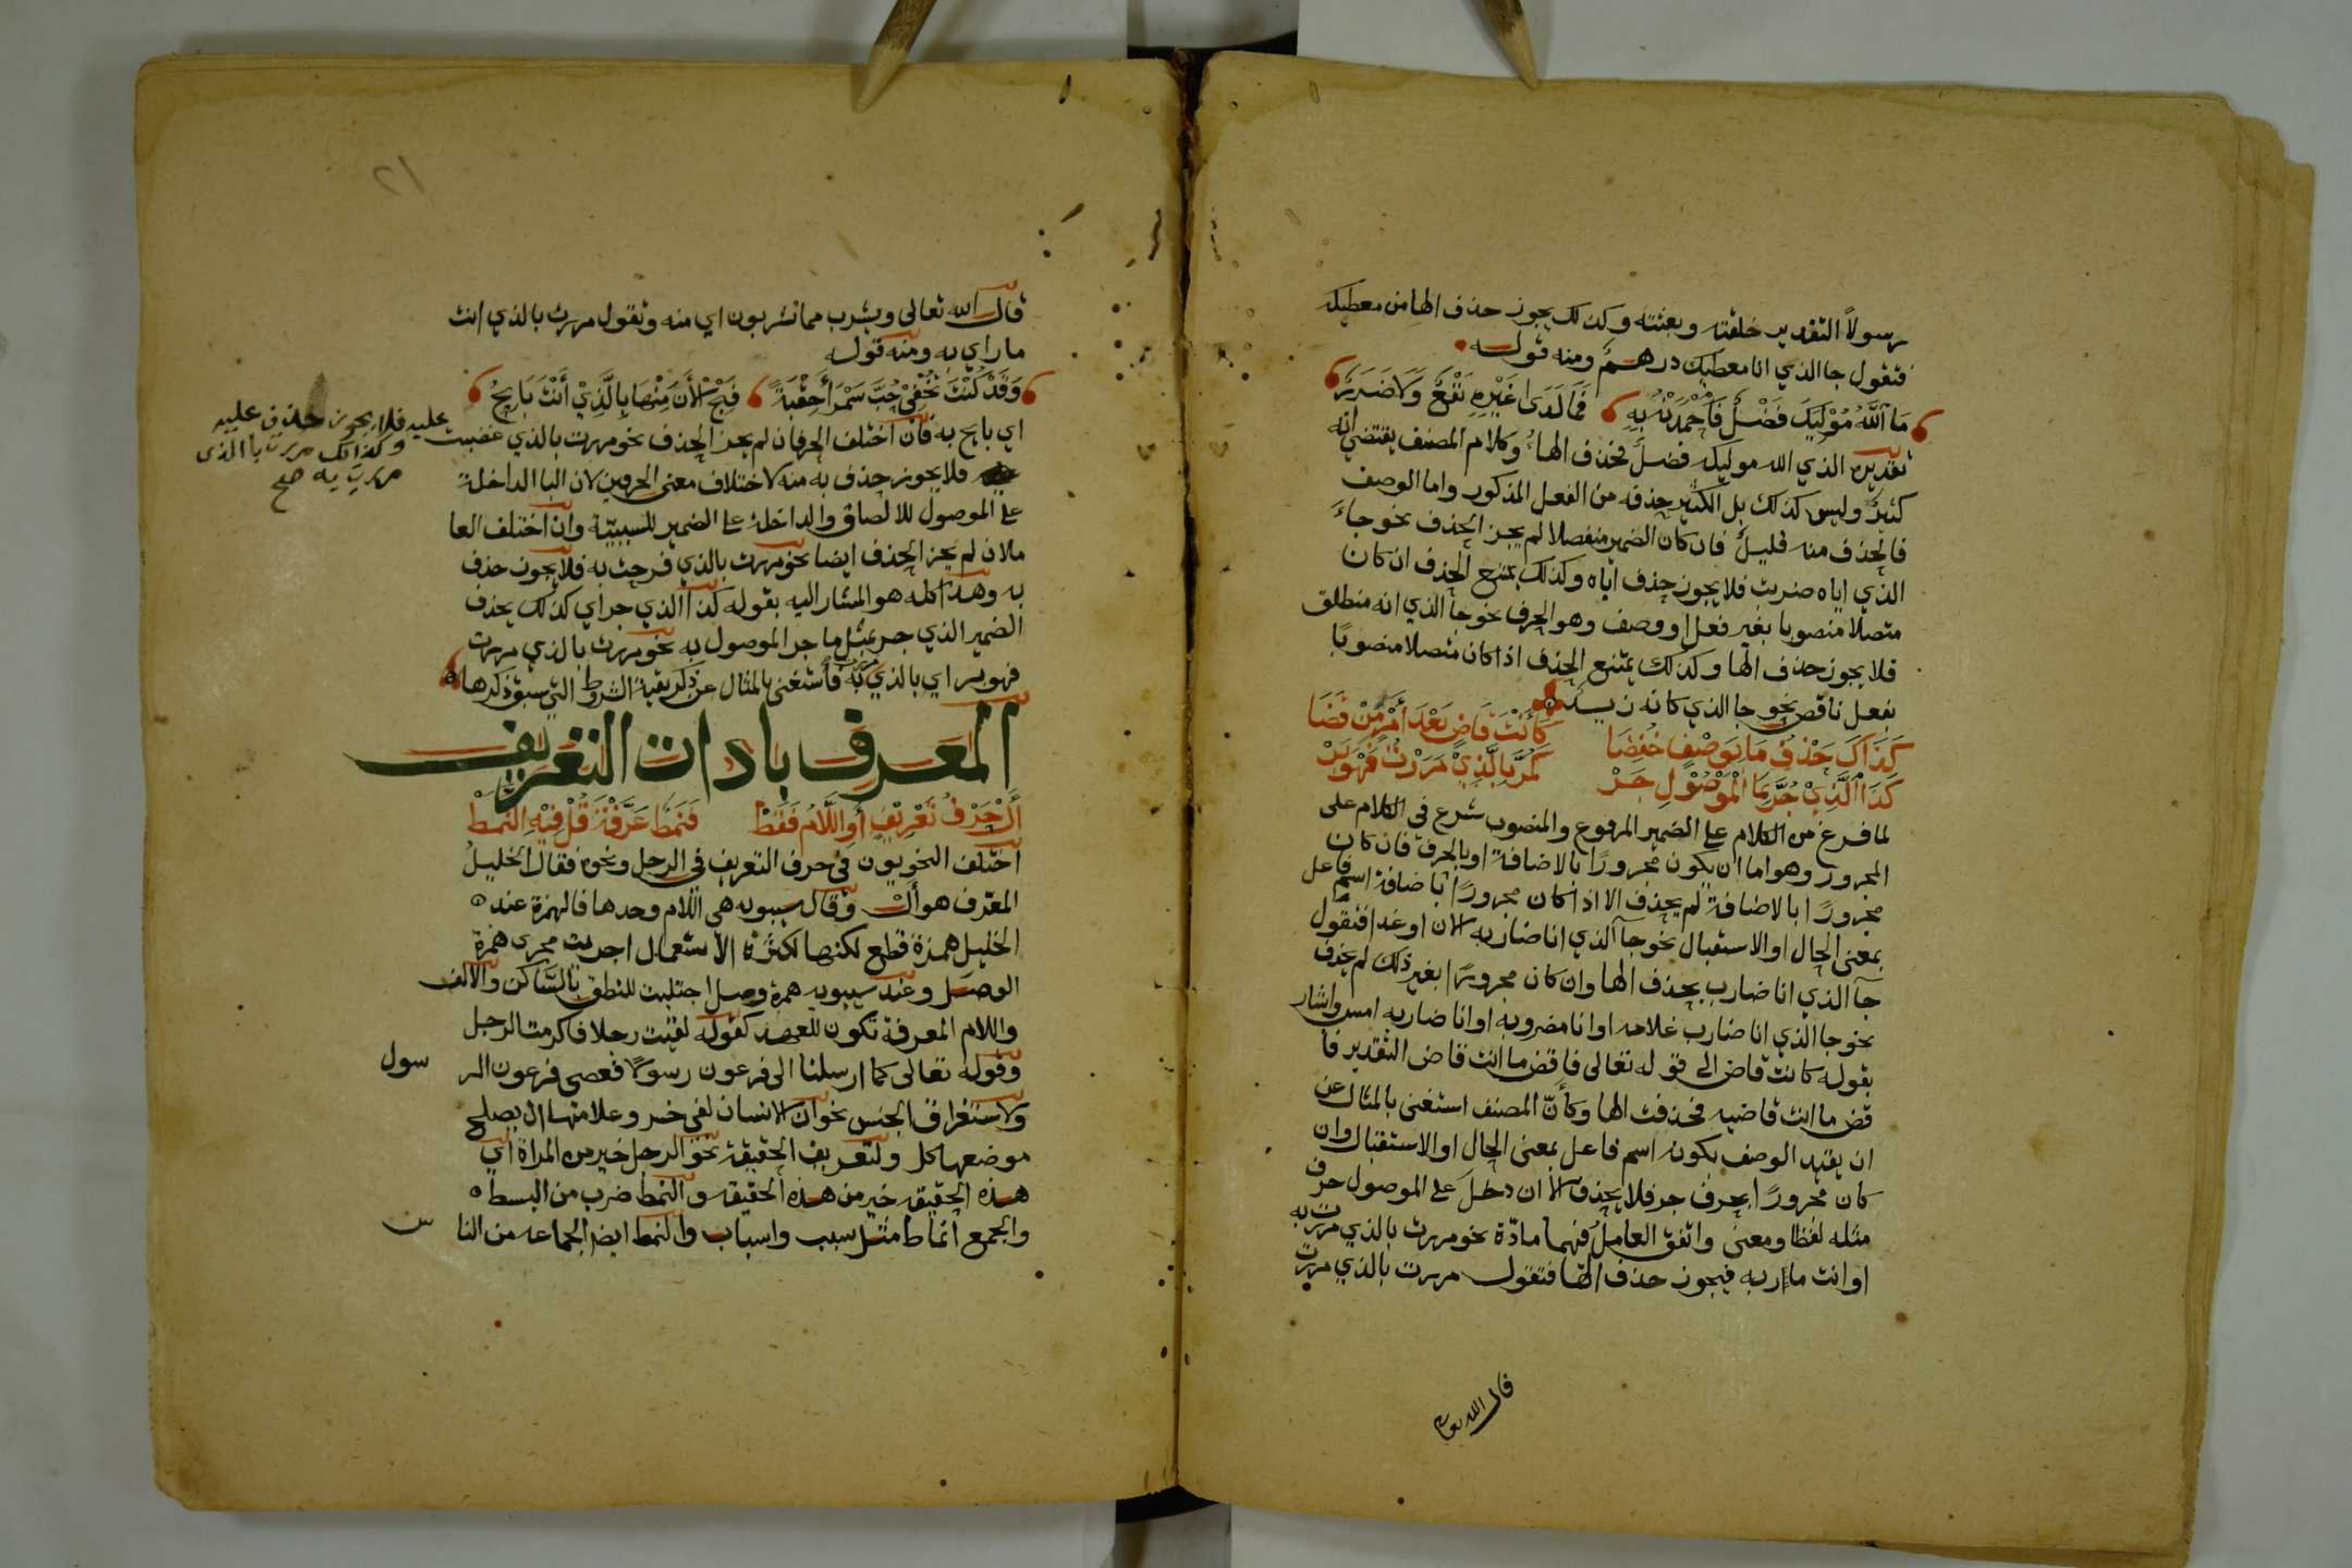 رسولاً التقدير خلقته وبعثته وكذلك يجوز حذف الها من معطيك
فتقول جا الذي انا معطيك درهم ومنه قوله
مَا اللهُ مُوْلِيكَ فَضْلٌ فَاحْمَدَنْهُ بِهِ فَمَا لَدَى غَيْرِهِ نَفْعٌ وَلَا ضَرَرُ
تقديره الذي الله موليك فضلٌ فحذف الهاءُ وكلام المصنف يقتضي انه
كثيرٌ وليس كذلك بل الكثير حذفه من الفعل المذكور واما الوصف
فالحذف منه قليلٌ فان كان الضمير منفصلا لم يجز الحذف نحو جاءَ
الذي اياه ضربت فلا يجوز حذف اياه وكذلك يمتنع الحذف ان كان
متصلا منصوبا بغير فعل او وصف وهو الحرف نحو جا الذي انه منطلق
فلا يجوز حذف الها وكذلك يمتنع الحذف اذا كان متصلا منصوبًا
بفعل ناقص نحو جا الذي كانه زيد
كَذَاكَ حَذْفُ مَا بِوَصْفٍ خُفِضَا كَأَنْتَ قَاضٍ بَعْدَ أَمْرٍ مِنْ قَضَا
كَذَا الَّذِيْ جُرَّ بِمَا الْمَوْصُوْلَ جَرْ كَمُرَّ بِالَّذِيْ مَرَرْتُ فَهْوَ بَرْ
لما فرغ من الكلام على الضمير المرفوع والمنصوب شرع في الكلام على
المجرور وهو اما ان يكون مجرورًا بالاضافة او بالحرف فان كان
مجرورًا بالاضافة لم يحذف الا اذا كان مجرورًا باضافة اسم فاعل
بمعنى الحال او الاستقبال نحو جا الذي انا ضاربه الان او غدا فتقول
جآ الذي انا ضارب بحذف الها وان كان مجرورًا بغير ذلك لم يحذف
نحو جا الذي انا ضارب غلامه او انا مضروبه او انا ضاربه امس واشار
بقوله كانت قاض الى قوله تعالى فاقض ما انت قاض التقدير فا
قض ما انت قاضيه فحذفت الها وكأنّ المصنف استغنى بالمثال عن
ان يقيد الوصف بكونه اسم فاعل بمعنى الحال او الاستقبال وان
كان مجرورًا بحرف جر فلا يحذف الا ان دخل على الموصول حرف
مثله لفظا ومعنى واتفق العامل فيهما مادّة نحو مررت بالذي مررت به
او انت مار به فيجوز حذف الها فتقول مررت بالذي مررت
قال الله تعالى
٢١
قال الله تعالى ويشرب مما تشربون اي منه وتقول مررت بالذي انت
مار اي به ومنه قوله
وَقَدْ كُنْتَ تُخْفِيْ حُبَّ سَمْرَا حِقْبَةً فَبُحْ لَانَ مِنْهَا بِالَّذِيْ أَنْتَ بَايِحُ
اي بايح به فان اختلف الحرفان لم يجز الحذف نحو مررت بالذي غضبت
عليه فلا يجوز حذف عليه
وكذالك مررت بالذى
مررت به صح
فلا يجوز حذف به منه لاختلاف معنى الحرفين لان البا الداخلة
على الموصول للالصاق والداخلة على الضمير للسببيّة وان اختلف العا
ملان لم يجز الحذف ايضا نحو مررت بالذي فرحت به فلا يجوز حذف
به وهذا كله هو المشار اليه بقوله كذا الذي جر اي كذلك يحذف
الضمير الذي جر بمثل ما جر الموصول به نحو مررت بالذي مررت
فهو بر اي بالذي مررت به فاستغنى بالمثال عن ذكر بقية الشروط التي سبق ذكرها
المعرف بادات التعريف
أَلْ حَرْفُ تَعْرِيْفٍ أَوِ اللَّامُ فَقَطْ فَنَمَطٌ عَرَّفْتَ قُلْ فِيْهِ النَّمَطْ
اختلف النحويون في حرف التعريف في الرجل ونحوه فقال الخليل
المعرّف هو أل وقال سيبويه هي اللام وحدها فالهمزة عند
الخليل همزة قطع لكنها لكثرة الاستعمال اجريت مجرى همزة
الوصل وعند سيبويه همزة وصل اجتلبت للنطق بالسّاكن والالف
واللام المعرفة تكون للعهد كقوله لقيت رجلا فاكرمت الرجل
وقوله تعالى كما ارسلنا الى فرعون رسولًا فعصى فرعون الر سول
ولاستغراق الجنس نحو ان الانسان لفي خسر وعلامتها ان يصلح
موضعها كل ولتعريف الحقيقة نحو الرجل خير من المراة اي
هذه الحقيقة خير من هذه الحقيقة والنمط ضرب من البسط
والجمع انماط مثل سبب واسباب والنمط ايضا الجماعه من النا س